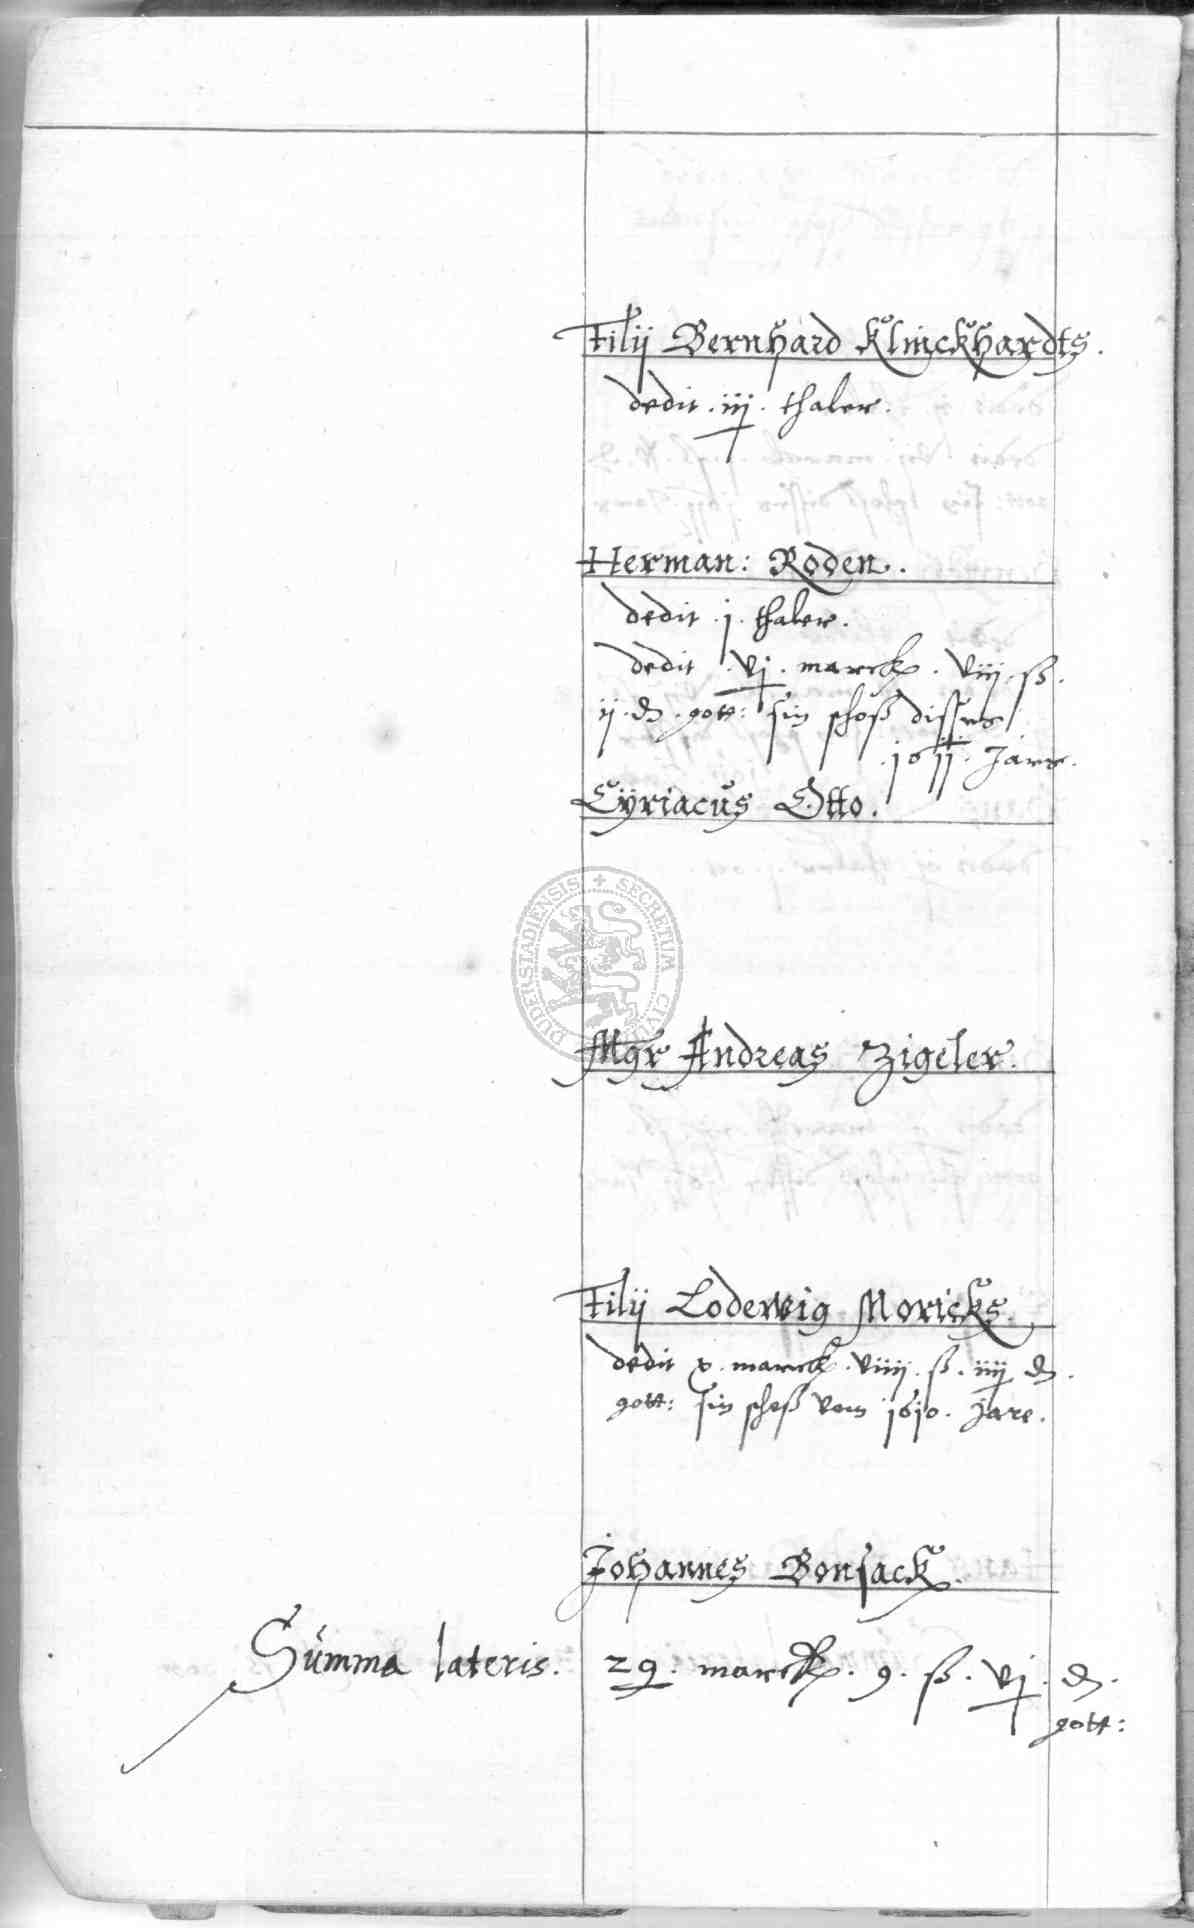 Filij Bernhard Klinckhardts.
dedit . iij . thaler.
Herman: Roden.
dedit . j . thaler.
dedit . vj . marck . viij . ß.
ij . d . gott: sin schoß disses
. 1611 . Jars.
Cÿriacus Otto.
DUDERSTADIENSIS + SECRETUM CIVIUM
Mgr Andreas Zigeler.
Filij Lodewig Moricks.
dedit x . marck . viiij . ß . iiij d.
gott: sin schoß vom 1610 . Jare.
Johannes Bonsack.
Summa lateris. 29 . marck . 9 . ß . vj . d.
gott: